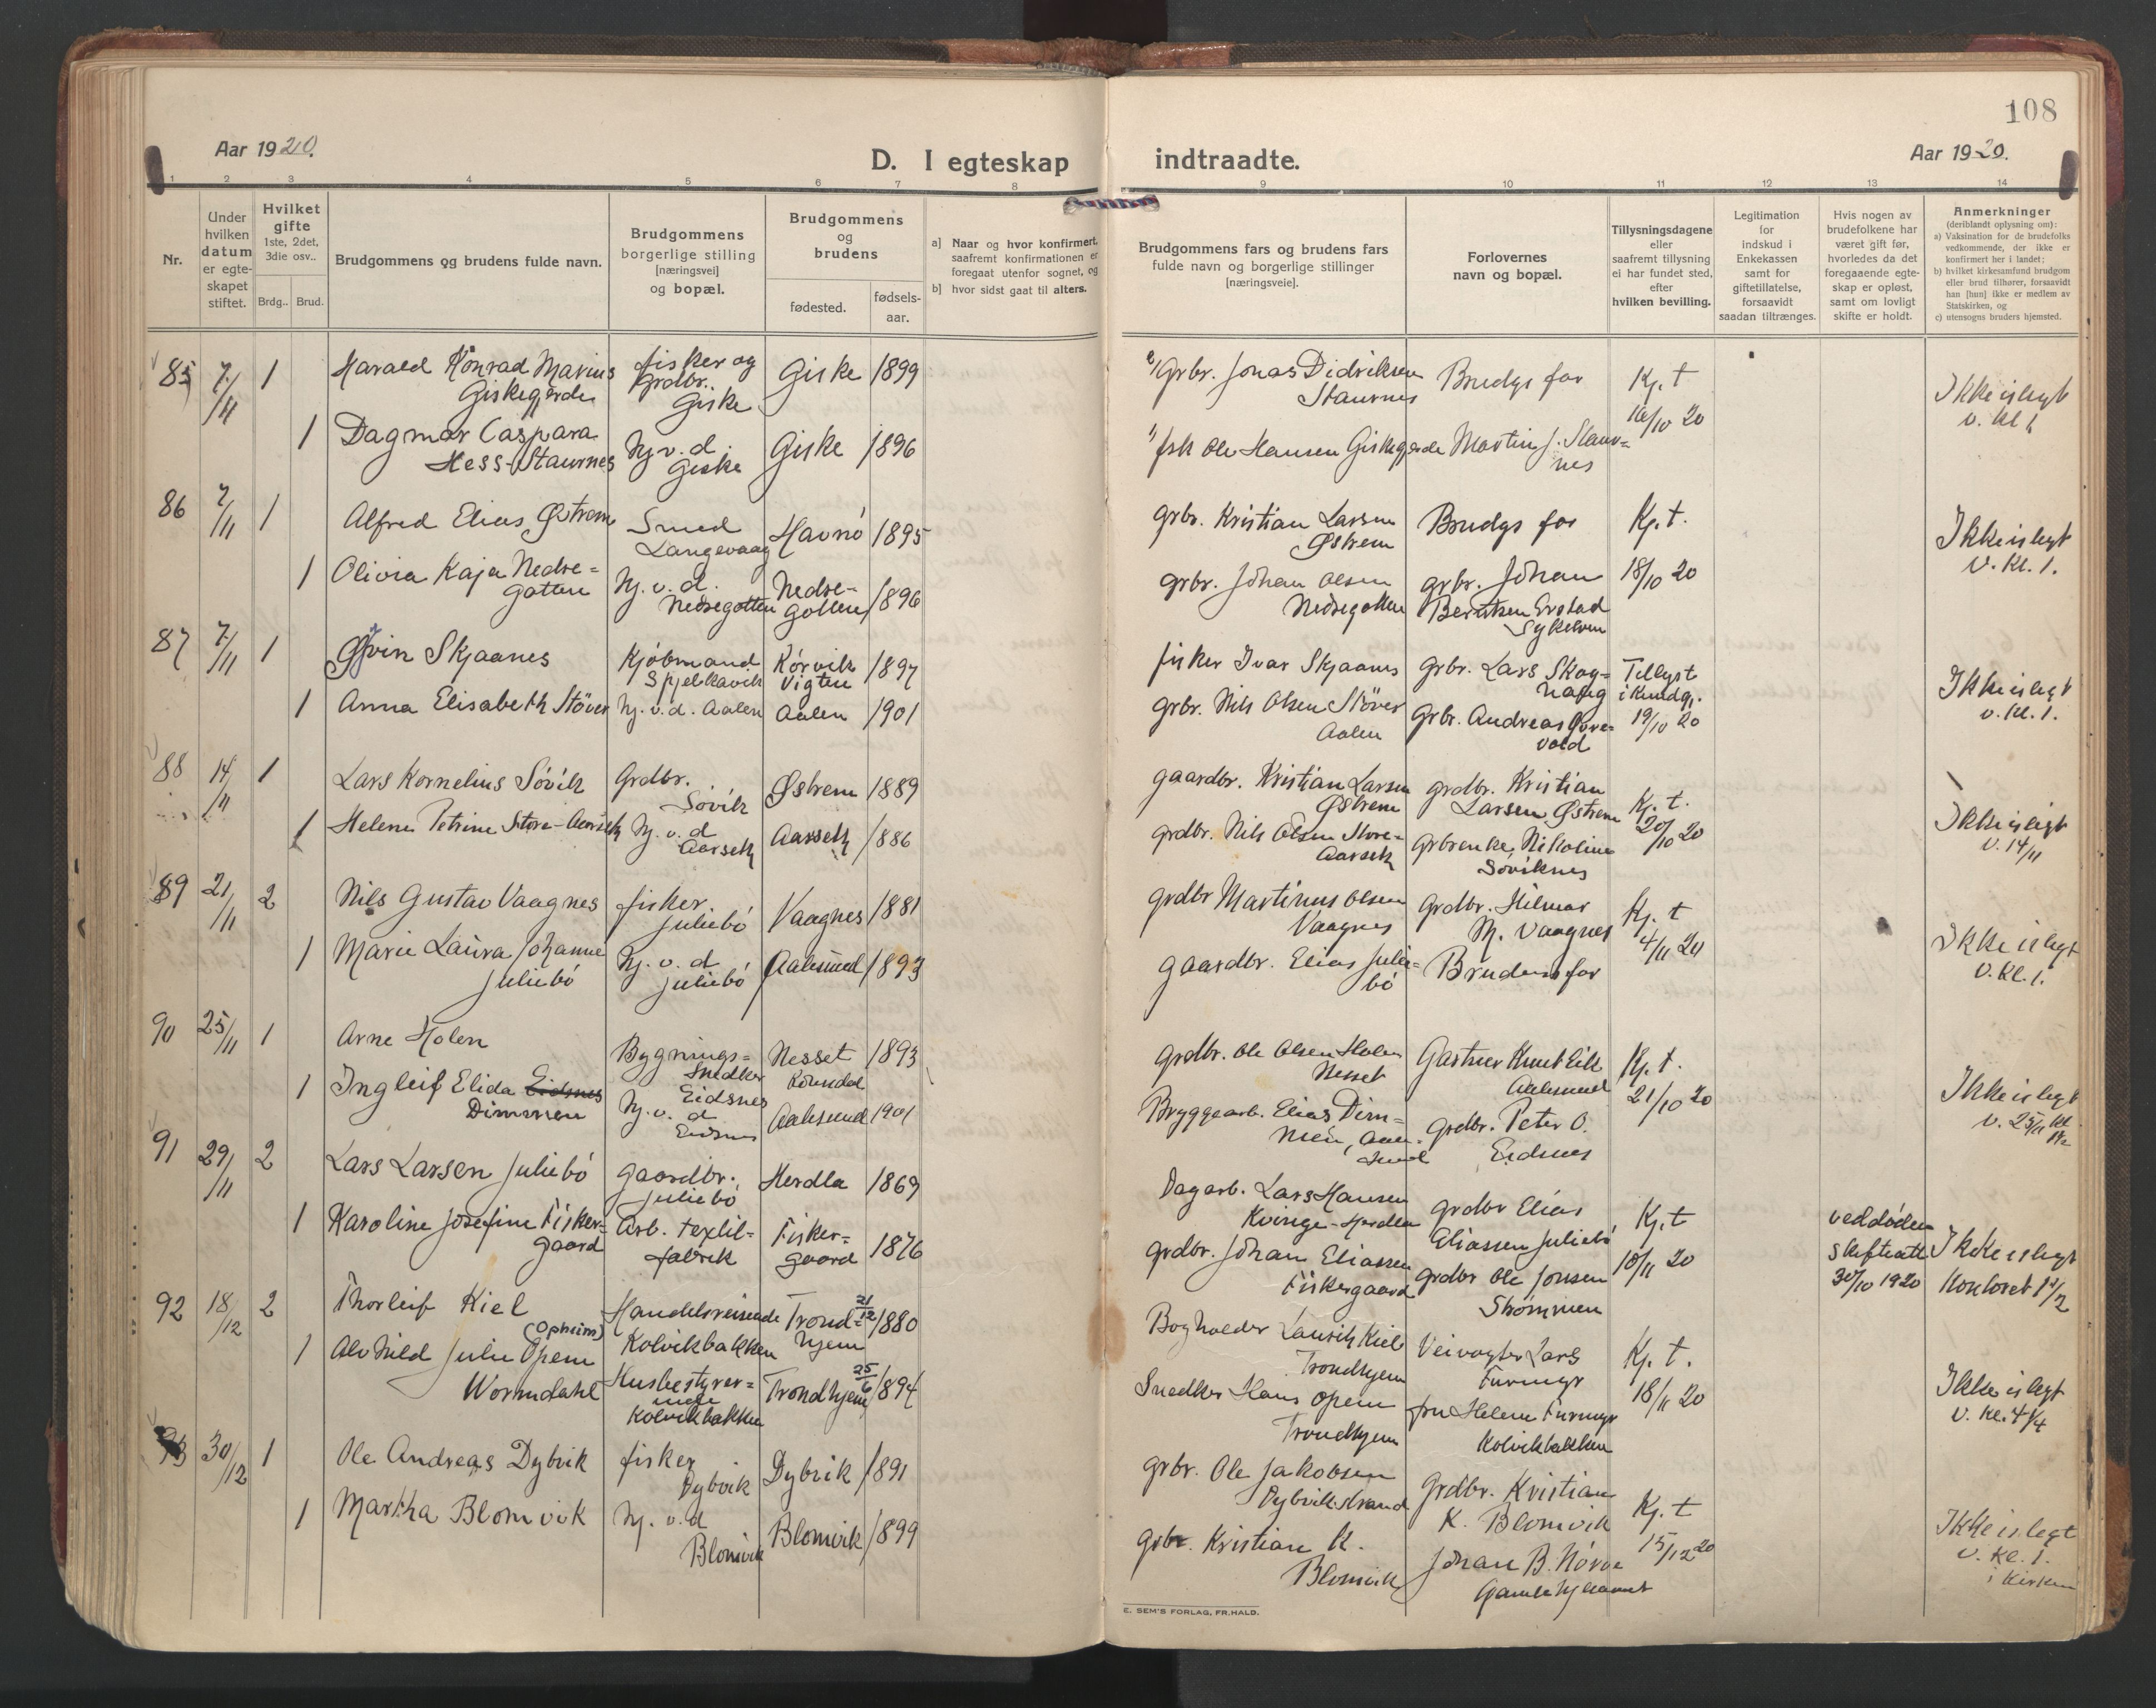 108
Aar 1920.
D. I egteskap
indtraadte.
Aar 1920.
1 2 3 4 5 6 7 8 9 10 11 12 13 14
Nr.
Under hvilken datum er egte-skapet stiftet.
Hvilket gifte 1ste, 2det, 3die osv..
Brdg..
Brud.
Brudgommens og brudens fulde navn.
Brudgommens borgerlige stilling [næringsvei] og bopæl.
Brudgommens og brudens
fødested.
fødsels-aar.
a] Naar og hvor konfirmert, saafremt konfirmationen er foregaat utenfor sognet, og
b] hvor sidst gaat til alters.
Brudgommens fars og brudens fars fulde navn og borgerlige stillinger [næringsveie].
Forlovernes navn og bopæl.
Tillysningsdagene eller saafremt tillysning ei har fundet sted, efter hvilken bevilling.
Legitimation for indskud i Enkekassen samt for giftetillatelse, forsaavidt saadan tiltrænges.
Hvis nogen av brudefolkene har været gift før, hvorledes da det foregaaende egte-skap er opløst, samt om lovligt skifte er holdt.
Anmerkninger (deriblandt oplysning om):
a) Vaksination for de brudefolks vedkommende, der ikke er konfirmert her i landet;
b) hvilket kirkesamfund brudgom eller brud tilhører, forsaavidt han [hun] ikke er medlem av Statskirken, og
c) utensogns bruders hjemsted.
85 7/11 1 Harald Konrad Marius fisker og Giske 1899 Grbr. Jonas Didriksen Brudgs far Kj. t Ikke islegt
Giskegjerde Grdbr. Giske Staurnes 16/10 20 v. kl 1
1 Dagmar Caspara Hj. v. d. Giske 1896 fsk Ole Hansen Giskegjerde Martin J. Staur=
Hess-Staurnes Giske nes
86 7/11 1 Alfred Elias Østrem Smed Havnö 1895 Grbr. Kristian Larsen Brudgs far Kj. t. Ikke islegt
Langevaag Østrem v. Kl. 1.
1 Olivia Kaja Nedre= Hj. v. d. Nedre- 1896 Grbr. Johan Olsen Grbr. Johan 18/10 20
Gotten Nedregotten Gotten Nedregotten Berntsen Erstad
87 7/11 1 Øivin Skjaanes Kjöbmand Körvik 1897 fisker Ivar Skjaanes Grbr. Lars Skog= Tillyst Ikke islegt
Spjelkavik Vigten i Kundg. v. Kl. 1.
1 Anna Elisabeth Stöver Hj. v. d. Aalen Aalen 1901 Grbr. Nils Olsen Stöver Grbr. Andreas 19/10 20
Aalen
88 14/11 1 Lars Kornelius Sövik Grdbr. Østrem 1889 Gaardbr. Kristian Larsen Grdbr. Kristian Kj. t. Ikke islegt
Sövik Østrem Larsen Østrem 20/10 20 v. 14/11
1 Helene Petrine Store-Aarseth Hj. v. d Aarseth 1886 Grdbr. Nils Olsen Store- Grbrenke Nikoline
Aarseth Aarseth Söviknes
89 21/11 2 Nils Gustav Vaagnes fisker Vaagnes 1881 Grdbr Martinus Olsen Grdbr. Hilmar Kj. t Ikke islegt
Juliebö Vaagnes M. Vaagnes 4/11 20 v. Kl. 1.
1 Marie Laura Johanne Hj. v. d Aalesund 1893 Gaardbr. Elias Julie= Brudens far
Juliebö Juliebö bö
90 25/11 1 Arne Holen Bygnings= Nesset 1893 Grdbr. Ole Olsen Holen Gartner Knut Eik Kj. t. Ikke islegt
Snedker Romsdal Nesset Aalesund 21/10 20 v. 25/11
Eidsnes
1 Ingleif Elida Eidsnes Hj. v. d Aalesund 1901 Bryggearb. Elias Dim= Grdbr. Peter O.
Dimmen Eidsnes men, Aale- Eidsnes
sund
91 29/11 2 Lars Larsen Juliebö Gaardbr. Herdla 1869 Dagarb. Lars Hansen Grdbr Elias Kj. t ved döden Ikke islegt
Juliebö Kvinge-Herdla Eliassen Juliebö 10/11 20 Skifteatt Kontoret
1 Karoline Josefine Fisker- Arb. textil- Fisker= 1876 Grdbr. Johan Eliassen Grdbr Ole Jonsen 30/10 1920
gaard fabrik gaard Fiskergaard Strömmen
92 18/12 2 Thorleif Kiel Handelsreisende Trond= 21/12 1880 Bogholder Lauritz Kiel Veivogter Lars Kj. t. Ikke islegt
(Opheim) Kolvikbakken hjem Trondhjem Furmyr 18/11 20 v. Kl. 4 1/4
1 Alvhild Julie Opem Husbestyrer= Trondhjem 25/6 1894 Snedker Hans Opem fru Helene Furmyr
Wormdahl inde Kolvikbakken Trondhjem Kolvikbakken
93 30/12 1 Ole Andreas Dybvik fisker Dybvik 1891 Grbr. Ole Jakobsen Grdbr. Kristian Kj. t Ikke islegt
Dybvik Dybvikstrand K. Blomvik 15/12 20 v. Kl. 1.
i Kirken
1 Martha Blomvik Hj. v. d Blomvik 1899 Grbr. Kristian K. Johan B. Nörve
Blomvik Blomvik
E. SEM'S FORLAG, FR.HALD.